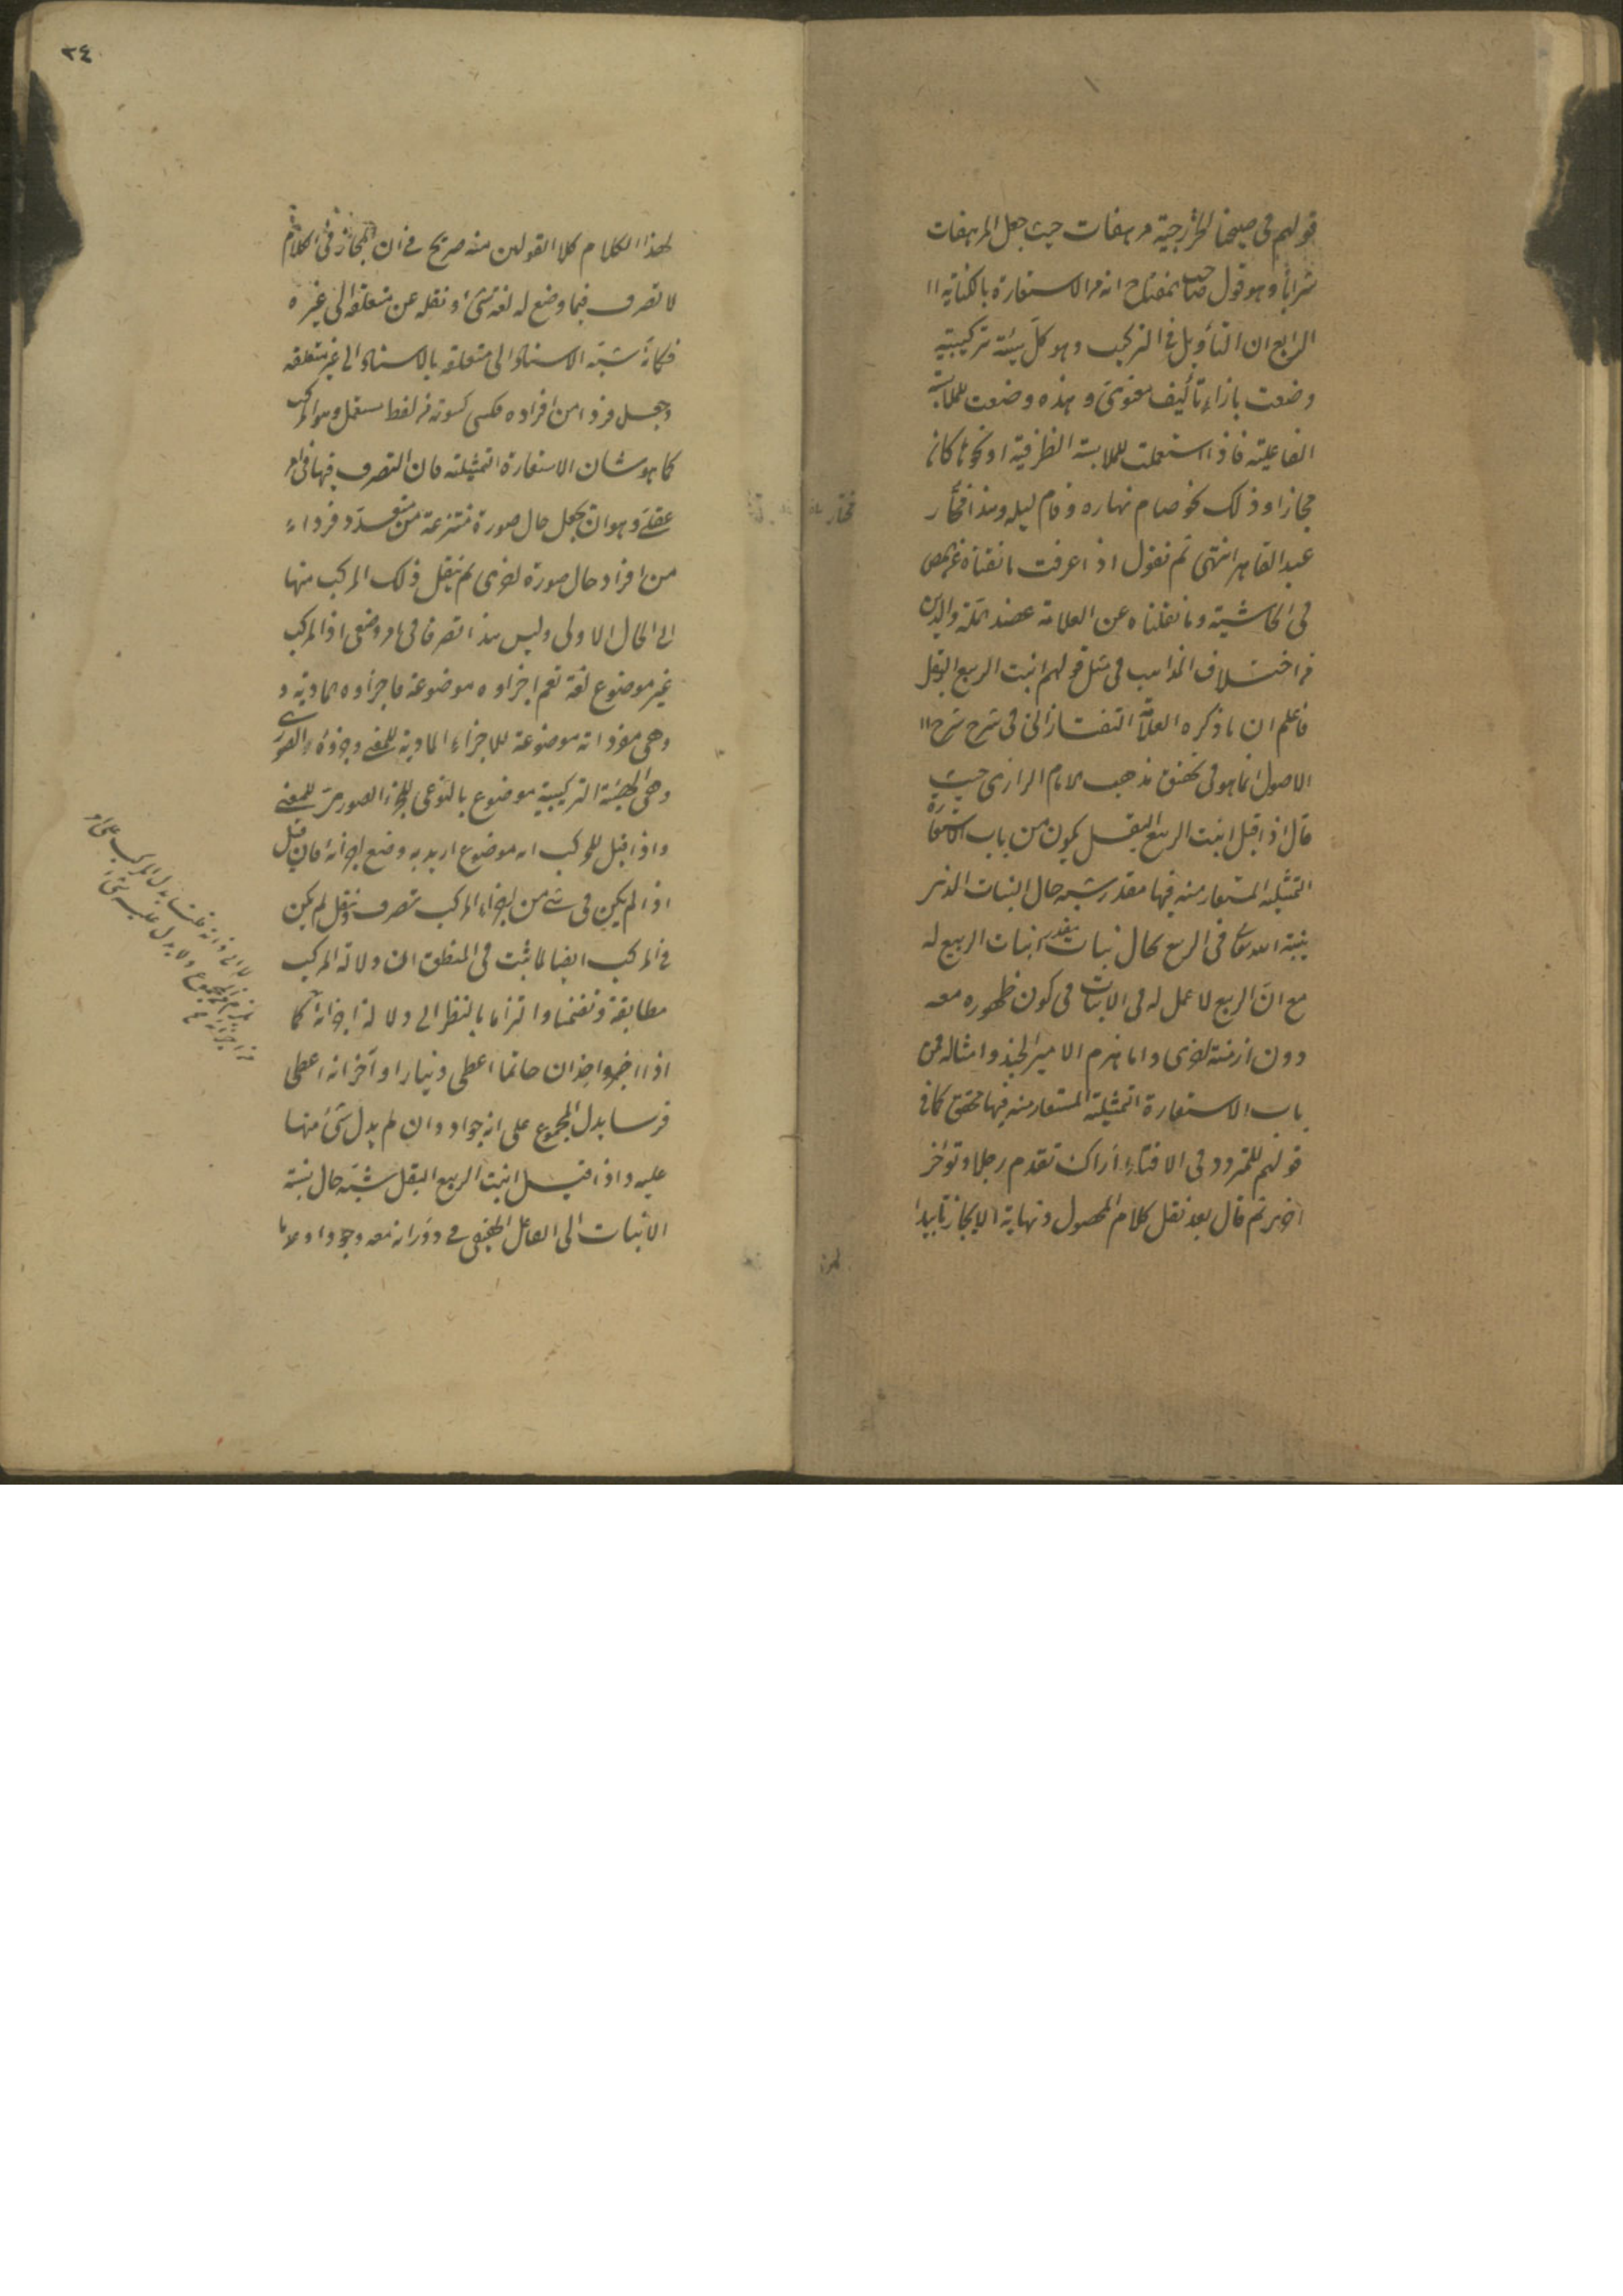 قولهم في صبحنا الخزرجية مرهفات حيث جعل المرهفات
شرابا وهو قول صاحب المفتاح انه من الاستعارة بالكناية
الرابع ان التأويل في التركيب وهو كل هيئة تركيبية
وضعت بازاء تأليف معنوى وهذه وضعت لملابسة
الفاعلية فاذا استعملت لملابسة الظرفية او نحوها كان
مجازا وذلك نحو صام نهاره وقام ليله وهذا مختار
عبد القاهر انتهى ثم نقول اذا عرفت ما نقلناه عن
في الحاشية وما نقلناه عن العلامة عضد الملة والدين
من اختلاف المذاهب في مثل قولهم انبت الربيع البقل
فاعلم ان ما ذكره العلامة التفتازانى في شرح شرح
الاصول انما هو في تحقيق مذهب الامام الرازى حيث
قال اذا قيل انبت الربيع البقل يكون من باب الاستعارة
التمثيلية المستعار منه فيها مقدر شبه حال النبات الذى
ينبته الله تعالى في الربيع بحال نبات يقدر انبات الربيع له
مع ان الربيع لا عمل له في الانبات في كون ظهوره معه
دون ازمنة اخرى واما هزم الامير الجند وامثاله فمن
باب الاستعارة التمثيلية المستعار منه فيها محقق كما في
قولهم للمتردد في الافتاء اراك تقدم رجلا وتؤخر
اخرى ثم قال بعد نقل كلام المحصول ونهاية الايجاز تأييدا
لهذا
٢٤
لهذا الكلام كلا القولين منه صريح في ان المجاز في الكلام
لا تصرف فيما وضع له لغة شئ ونقله عن متعلقه الى غيره
فكانه شبه الاسناد الى متعلقه بالاسناد الى غير متعلقه
وجعل فردا من افراده فكسى كسوته في لفظ مستعمل وهو المركب
كما هو شان الاستعارة التمثيلية فان التصرف فيها في امر
عقلى وهو ان يجعل حال صورة منتزعة من متعدد فردا
من افراد حال صورة اخرى ثم ينقل ذلك المركب منها
الى الحال الاولى وليس هذا تصرفا في امر وضعى اذ المركب
غير موضوع لغة نعم اجزاوه موضوعة فاجزاوه المادية
وهى مفرداته موضوعة للاجزاء المادية للمعنى وجزؤه الصورى
وهى الهيئة التركيبية موضوع بالنوعى للجزء الصورى للمعنى
واذا قيل للمركب انه موضوع اريد به وضع اجزائه فان قيل
اذا لم يكن في شئ من اجزاء المركب تصرف ونقل لم يكن
في المركب ايضا لما ثبت في المنطق ان دلالة المركب
مطابقة وتضمنا والتزاما بالنظر الى دلالة اجزائه كما
اذا اخبر واحد ان حاتما اعطى دينارا وآخر انه اعطى
فرسا يدل المجموع على انه جواد وان لم يدل شئ منها
عليه واذا قيل انبت الربيع البقل شبه حال نسبة
الانبات الى الفاعل الحقيقى في دورانه معه وجودا وعدما